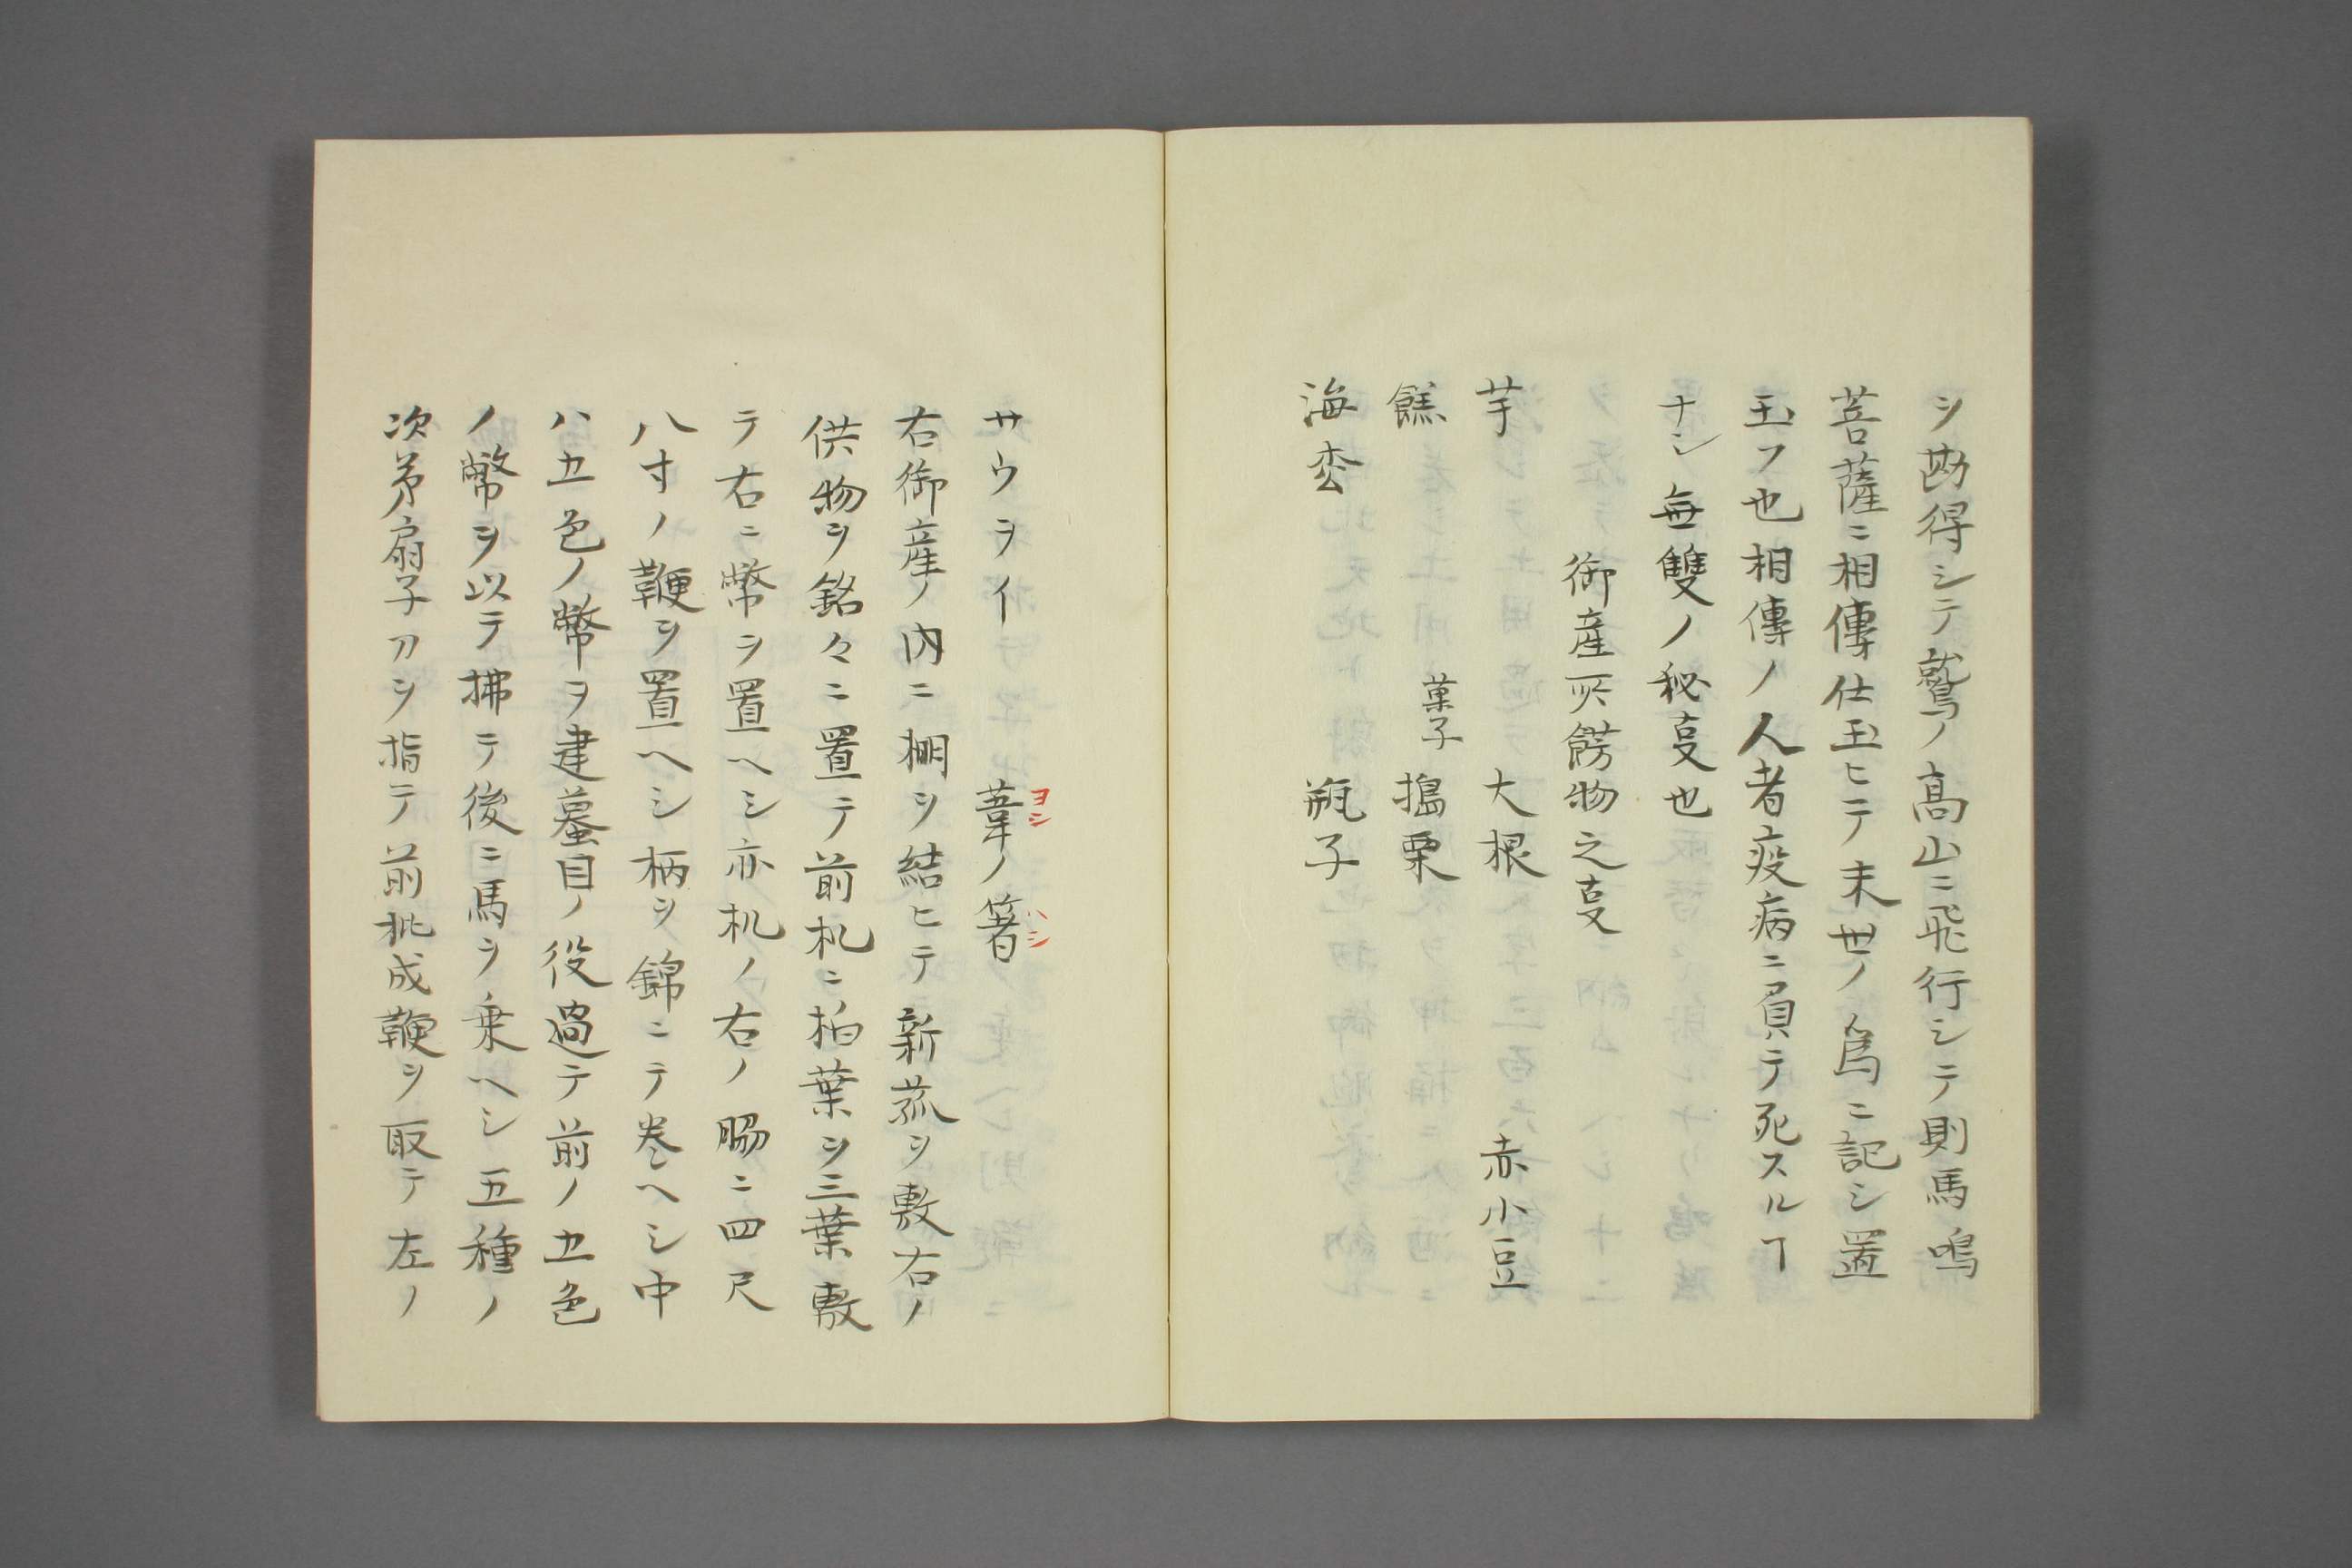 ヲ勘得シテ鷲ノ高山ニ飛行シテ則馬鳴
菩薩ニ相傳仕玉ヒテ末世ノ爲ニ記シ置
玉フ也相傳ノ人者疫病ニ負テ死スルヿ
ナシ無雙ノ秘叓也
御産所餝物之叓
芋 大根 赤小豆
餻 菓子 搗栗
海枩 瓶子
サウヲイ 葦ノ箸
ヨシ ハシ
右御産ノ内ニ棚ヲ結ヒテ新菰ヲ敷右ノ
供物ヲ銘々ニ置テ前机ニ柏葉ヲ三葉敷
テ右ニ幣ヲ置ヘシ亦机ノ右ノ脇ニ四尺
八寸ノ鞭ヲ置ヘシ柄ヲ錦ニテ巻ヘシ中
ハ五色ノ幣ヲ建蟇目ノ役過テ前ノ五色
ノ幣ヲ以テ拂テ後ニ馬ヲ乗ヘシ五種ノ
次苐扇子刀ヲ指テ前批成鞭ヲ取テ左ノ